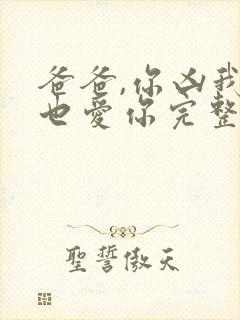 爸爸,你凶我
也愛你完整
聖誓傲天